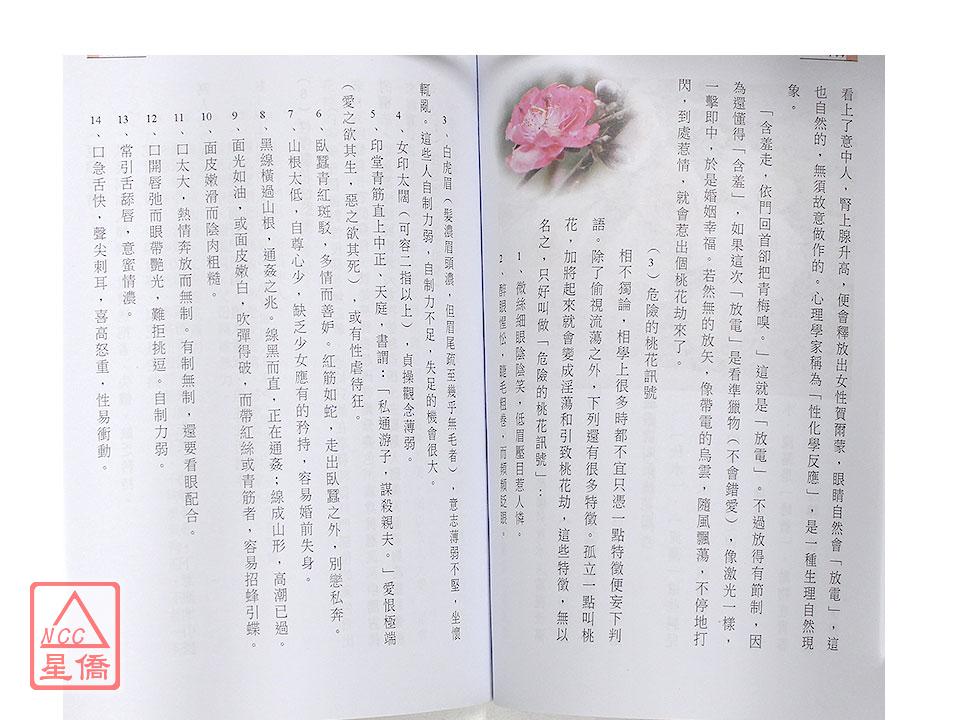 看上了意中人，腎上腺升高，便會釋放出女性賀爾蒙，眼睛自然會「放電」，這
也自然的，無須故意做作的。心理學家稱為「性化學反應」，是一種生理自然現
象。
「含羞走，依門回首卻把青梅嗅。」這就是「放電」。不過放得有節制，因
為還懂得「含羞」，如果這次「放電」是看準獵物（不會錯愛），像激光一樣，
一擊即中，於是婚姻幸福。若然無的放矢，像帶電的烏雲，隨風飄蕩，不停地打
閃，到處惹情，就會惹出個桃花劫來了。
（3）危險的桃花訊號
相不獨論，相學上很多時都不宜只憑一點特徵便妄下判
語。除了偷視流蕩之外，下列還有很多特徵。孤立一點叫桃
花，加將起來就會變成淫蕩和引致桃花劫，這些特徵，無以
名之，只好叫做「危險的桃花訊號」：
1、微絲細眼陰陰笑，低眉壓目惹人憐。
2、醉眼惺忪，睫毛粗卷，而頻頻眨眼。
3、白虎眉（髮濃眉頭濃，但眉尾疏至幾乎無毛者），意志薄弱不堅，坐懷
輒亂。這些人自制力弱，自制力不足，失足的機會很大。
4、女印太闊（可容二指以上），貞操觀念薄弱。
5、印堂青筋直上中正、天庭，書謂：「私通游子，謀殺親夫。」愛恨極端
（愛之欲其生，惡之欲其死），或有性虐待狂。
6、臥蠶青紅斑駁，多情而善妒。紅筋如蛇，走出臥蠶之外，別戀私奔。
7、山根太低，自尊心少，缺乏少女應有的矜持，容易婚前失身。
8、黑線橫過山根，通姦之兆。線黑而直，正在通姦；線成山形，高潮已過。
9、面光如油，或面皮嫩白，吹彈得破，而帶紅絲或青筋者，容易招蜂引蝶。
10、面皮嫩滑而陰肉粗糙。
11、口太大，熱情奔放而無制。有制無制，還要看眼配合。
12、口開唇弛而眼帶艷光，難拒挑逗。自制力弱。
13、常引舌舔唇，意蜜情濃。
14、口急舌快，聲尖刺耳，喜高怒重，性易衝動。
NCC
星僑